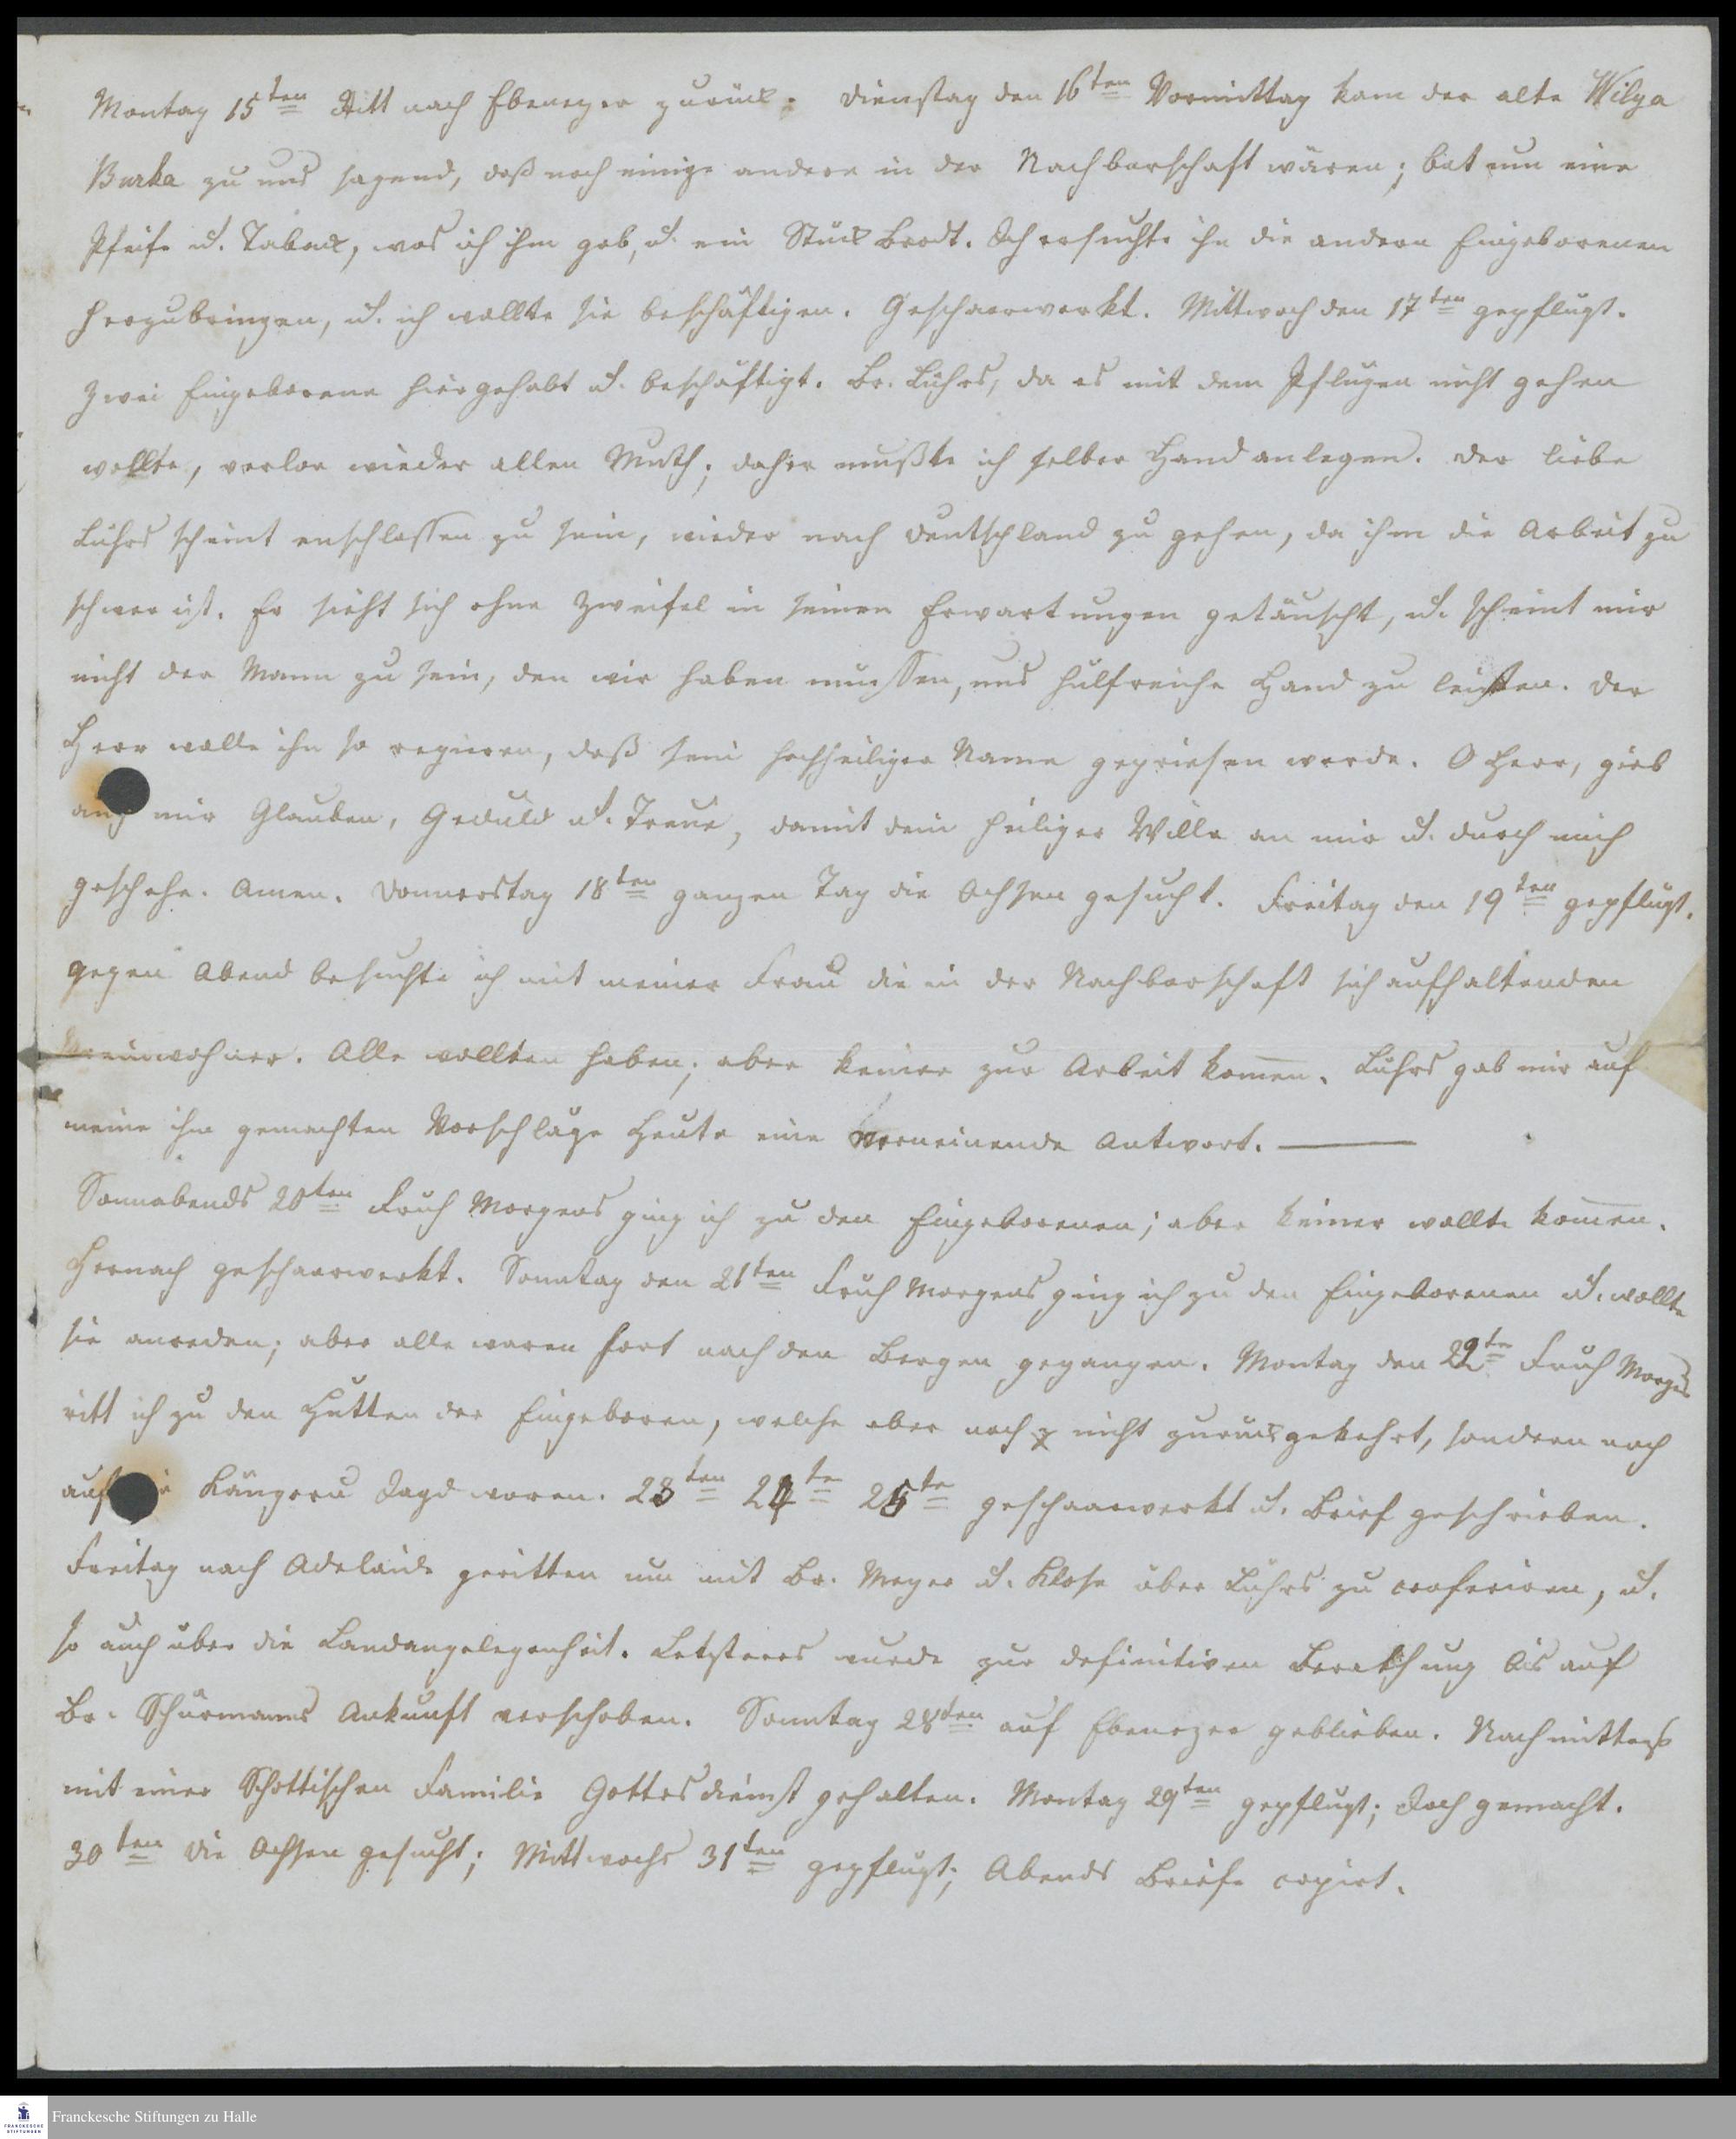 Montag 15ten Ritt nach Ebenezer zurück. Dienstag den 16ten Vormittag kam der alte Wilya
Burka zu uns sagend, daß noch einige andere in der Nachbarschaft wären; bat um eine
Pfeife u. Taback, was ich ihm gab, u. ein Stück Brodt. Ich ersuchte ihn die andern Eingeborenen
herzubringen, u. ich wollte sie beschäftigen. Geschaarwerkt. Mittwoch den 17ten gepflügt.
Zwei Eingeborene hier gehabt u. beschäftigt. Br. Lührs, da es mit dem Pflügen nicht gehen
wollte, verlor wieder allen Muth; daher mußte ich selber Hand anlegen. Der liebe
Lührs scheint enschlossen zu sein, wieder nach Deutschland zu gehen, da ihm die Arbeit zu
schwer ist. Er sieht sich ohne Zweifel in seinen Erwartungen getäuscht, u. scheint mir
nicht der Mann zu sein, den wir haben müssen, uns hülfreiche Hand zu leisten. Der
Herr wolle ihn so regieren, daß sein hochheiliger Name gepriesen werde. O Herr, gieb
auch mir Glauben, Geduld u. Treue, damit dein heiliger Wille an mir u. durch mich
geschehe. Amen. Donnerstag 18ten ganzen Tag die Ochsen gesucht. Freitag den 19ten gepflügt.
gegen Abend besuchte ich mit meiner Frau die in der Nachbarschaft sich aufhaltenden
Alle wollten haben; aber keiner zur Arbeit kom̄en. Lührs gab mir auf
meine ihm gemachten Vorschläge heute eine verneinende Antwort. —
Sonnabends 20ten Früh Morgens ging ich zu den Eingeborenen; aber keiner wollte kom̄en.
Hernach geschaarwerkt. Sonntag den 21ten Früh Morgens ging ich zu den Eingeborenen u. wollte
sie anreden; aber alle waren fort nach den Bergen gegangen. Montag den 22te Früh Morgens
ritt ich zu den Hütten der Eingeboren, welche aber noch nicht zurückgekehrt, sondern noch
auf Känguru Jagd waren. 23ten 24te 25te geschaarwerkt u. Brief geschrieben.
Freitag nach Adelaide geritten um mit Br. Meyer u. Klose über Lührs zu conferiren, u.
so auch über die Landangelegenheit. Letzteres wurde zur definitiven Berathung bis auf
Br. Schürmanns Ankunft verschoben. Sonntag 28ten auf Ebenezer geblieben. Nachmittags
mit einer Schottischen Familie Gottesdienst gehalten. Montag 29ten gepflügt; Joch gemacht.
30ten die Ochsen gesucht; Mittwochs 31ten gepflügt; Abends Briefe copirt.
FRANCKESCHE
STIFTUNGEN
Franckesche Stiftungen zu Halle